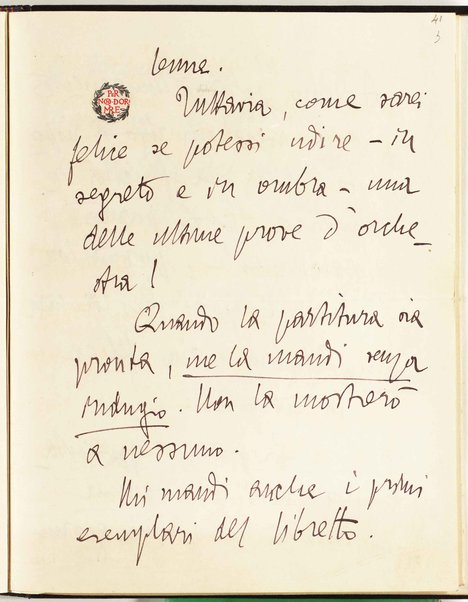 41
lenne.
PER
NON DOR
MIRE
Tuttavia, come sarei
felice se potessi udire – in
segreto e in ombra – una
delle ultime prove d'orche–
stra!
Quando la partitura sia
pronta, me la mandi senza
indugio. Non la mostrerò
a nessuno.
Mi mandi anche i primi
esemplari del libretto.